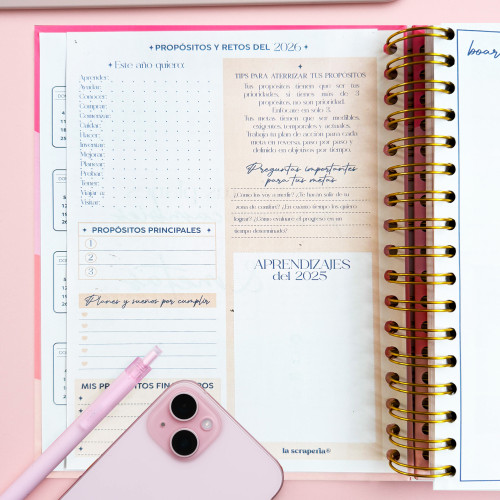 PROPÓSITOS Y RETOS DEL 2026
Este año quiero:
Aprender:
Ayudar:
Conocer:
Comprar:
Comenzar:
Cuidar:
Hacer:
Invertir:
Mejorar:
Planear:
Probar:
Tener:
Viajar a:
Visitar:
PROPÓSITOS PRINCIPALES
1
2
3
Planes y sueños por cumplir
MIS PROPÓSITOS FIN
ROS
TIPS PARA ATERRIZAR TUS PROPÓSITOS
Tus propósitos tienen que ser tus
prioridades, si tienes más de 3
propósitos, no son prioridad.
Enfócate en solo 3.
Tus metas tienen que ser medibles,
exigentes, temporales y actuales.
Trabaja tu plan de acción para cada
meta en reversa, paso por paso y
definido en objetivos por tiempo.
Preguntas importantes
para tus metas
¿Cómo los voy a medir? ¿Te harán salir de su
zona de confort? ¿En cuánto tiempo los quiero
lograr? ¿Cómo evaluaré el progreso en un
tiempo determinado?
APRENDIZAJES
del 2025
la scraperia®
boar